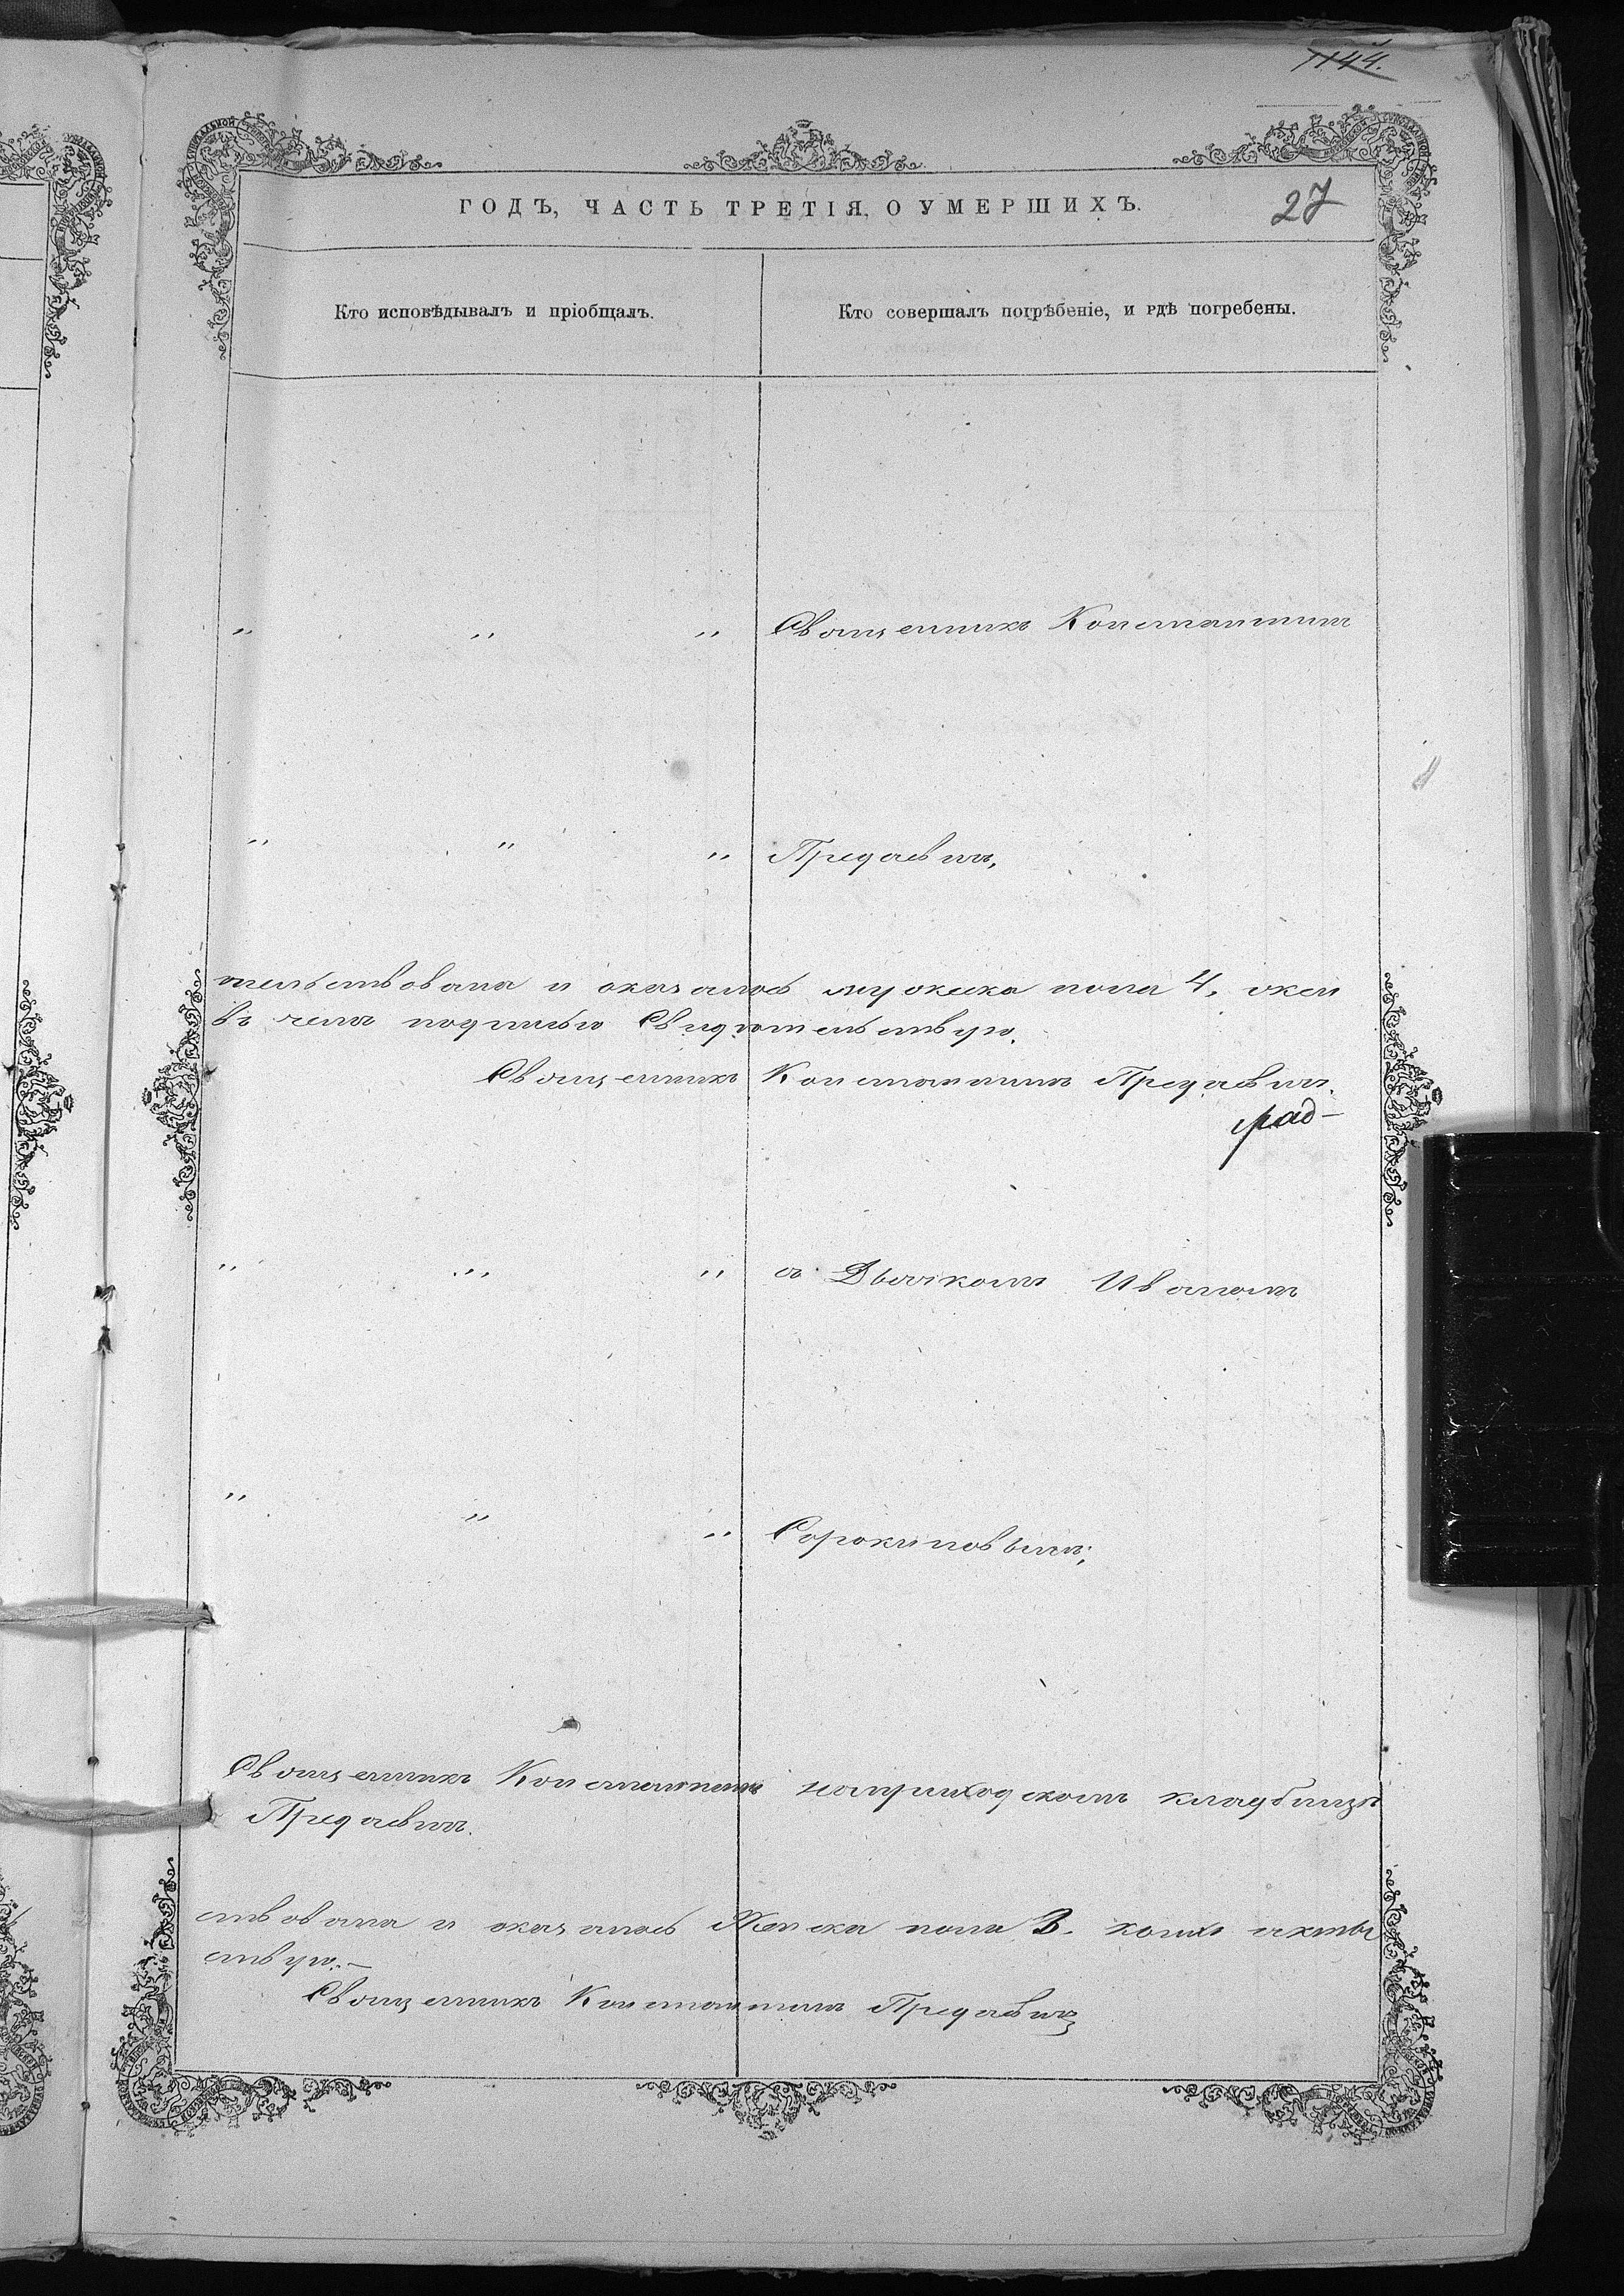 1144.
ГОДЪ, ЧАСТЬ ТРЕТІЯ, О УМЕРШИХЪ.
27
Кто исповѣдывалъ и пріобщалъ.
Кто совершалъ погрѣбеніе, и гдѣ погребены.
" " " Священникъ Константинъ
" " " Предаевичъ,
тельствована и оказалось мужеска пола 4, жен
въ чемъ подписью Свидѣтельствую.
Священникъ Константинъ Предаевичъ.
" " " съ Дьячкомъ Иваномъ
" " " Сорокиновымъ;
Священникъ Константинъ наприходскомъ кладбищѣ
Предаевичъ.
ствована и оказалось Женска пола 3.
ствую.—
Священникъ Константинъ Предаевичъ